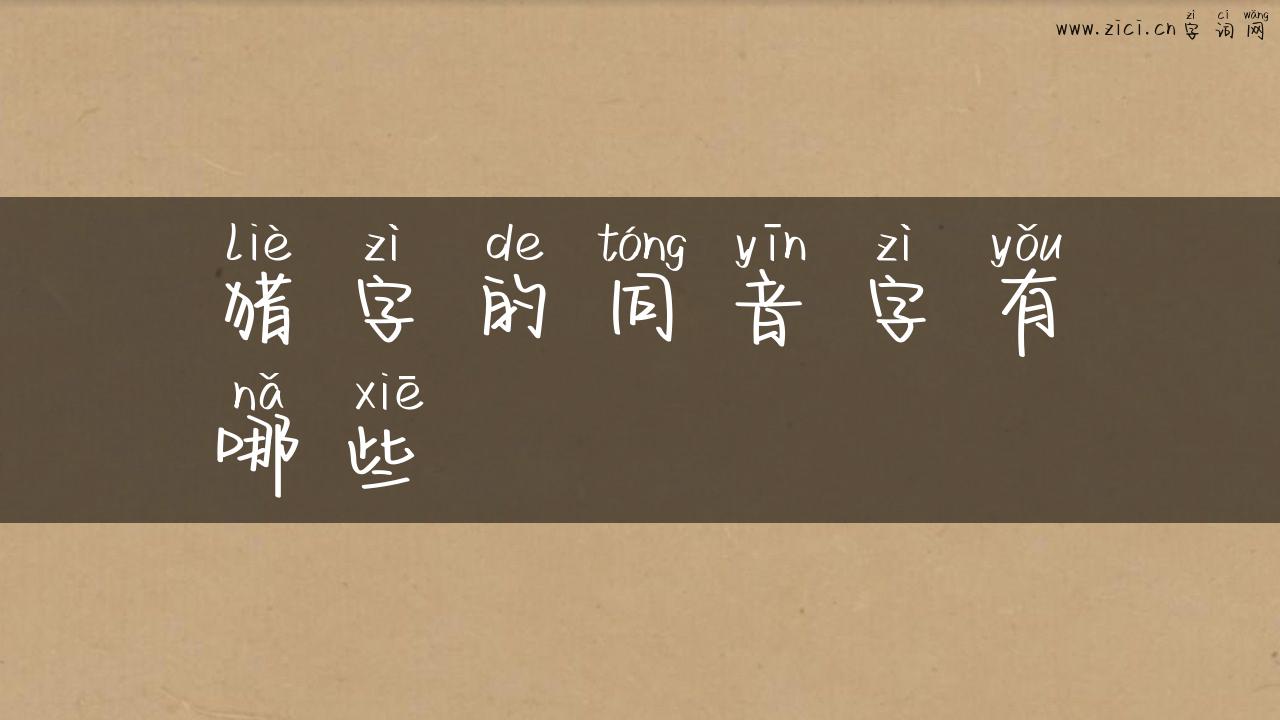 zì cí wǎng
www.zici.cn 字词网
liè zì de tóng yīn zì yǒu
猎字的同音字有
nǎ xiē
哪些